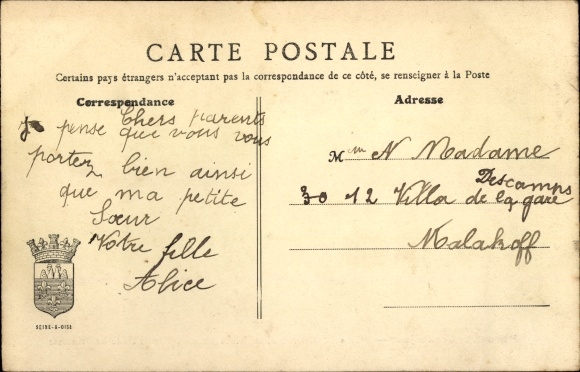 CARTE POSTALE
Certains pays étrangers n'acceptant pas la correspondance de ce côté, se renseigner à la Poste
Correspondance
Chers parents
Je pense que vous vous
portez bien ainsi
que ma petite
Sœur
Votre fille
Alice
SEINE-&-OISE
Adresse
M N Madame
Descamps
30 12 Villa de la gare
Malakoff